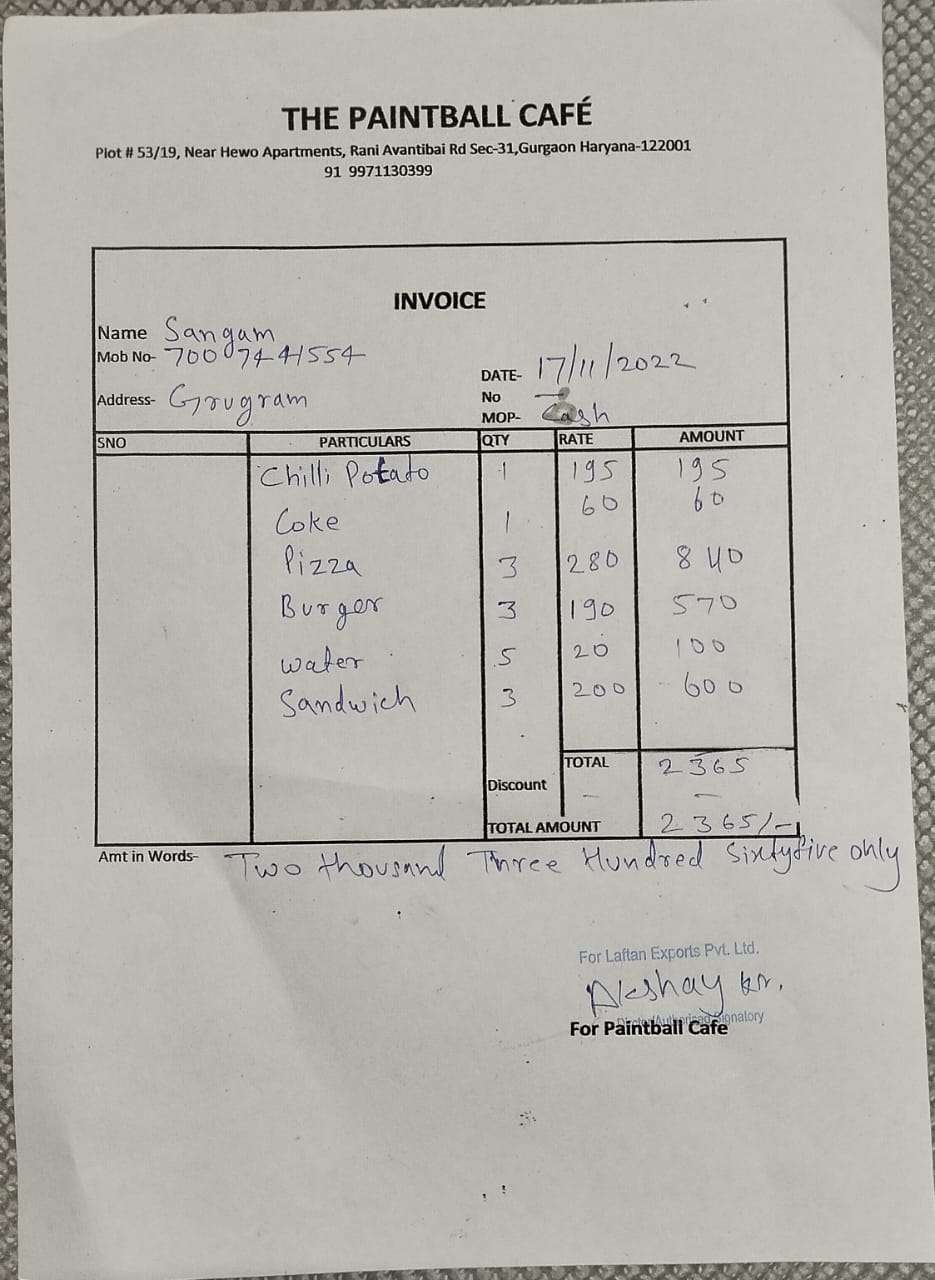 THE PAINTBALL CAFÉ
Plot # 53/19, Near Hewo Apartments, Rani Avantibai Rd Sec-31,Gurgaon Haryana-122001
91 9971130399
INVOICE
Name Sangam
Mob No- 70007441554
Address- Grugram
DATE- 17/11/2022
No -
MOP- Cash
SNO PARTICULARS QTY RATE AMOUNT
Chilli Potato 1 195 195
Coke 1 60 60
Pizza 3 280 840
Burger 3 190 570
water 5 20 100
Sandwich 3 200 600
TOTAL 2365
Discount - -
TOTAL AMOUNT 2365/-
Amt in Words- Two thousand Three Hundred Sixtyfive only
For Laftan Exports Pvt. Ltd.
Akshay kr.
Signatory
For Paintball Cafe